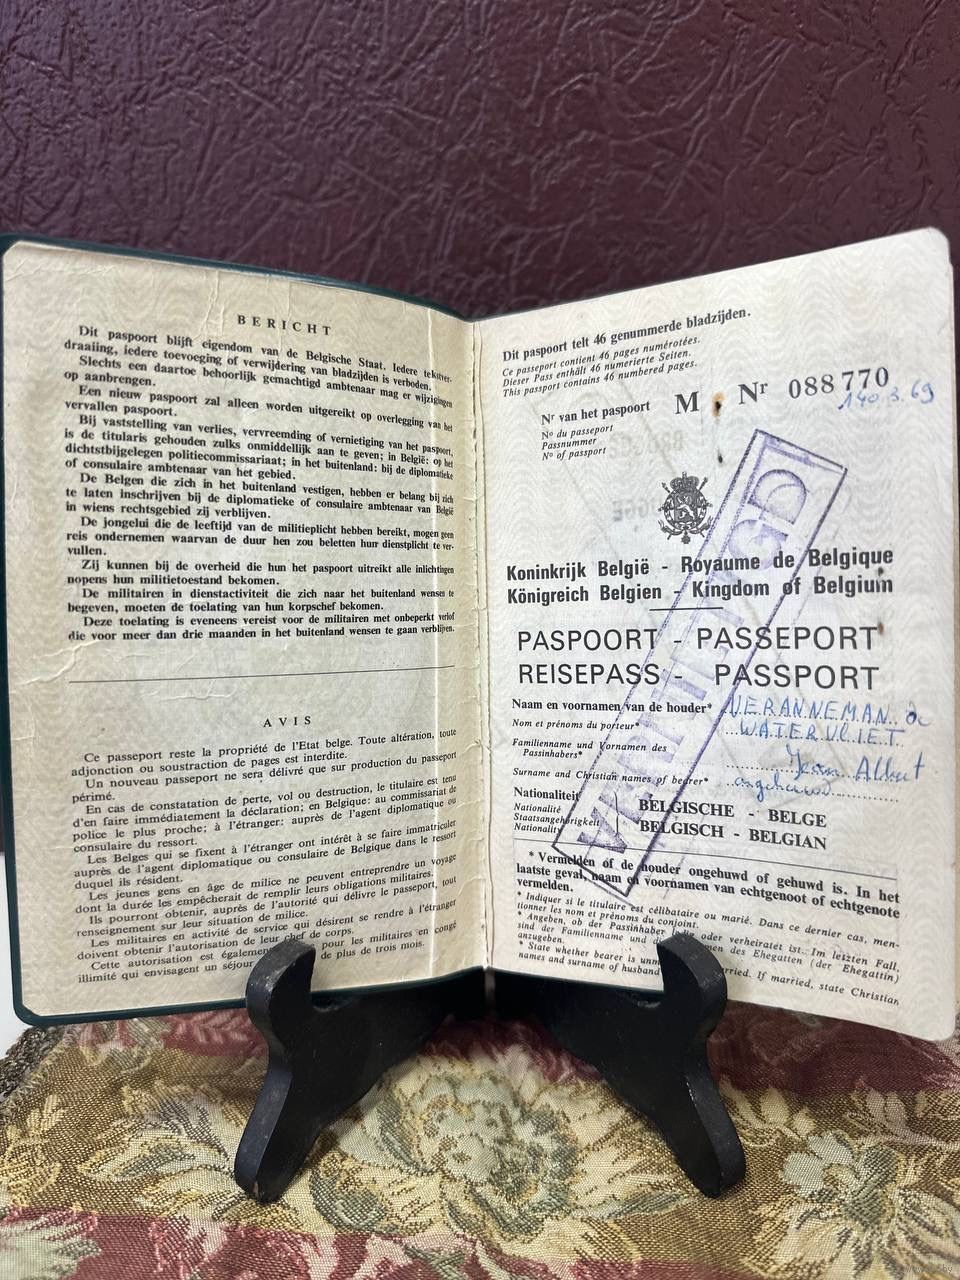 BERICHT
Dit paspoort blijft eigendom van de Belgische Staat. Iedere tekstver-
draaiing, iedere toevoeging of verwijdering van bladzijden is verboden.
Slechts een daartoe behoorlijk gemachtigd ambtenaar mag er wijzigingen
op aanbrengen.
Een nieuw paspoort zal alleen worden uitgereikt op overlegging van het
vervallen paspoort.
Bij vaststelling van verlies, vervreemding of vernietiging van het paspoort,
is de titularis gehouden zulks onmiddellijk aan te geven; in België: op het
dichtstbijgelegen politiecommissariaat; in het buitenland: bij de diplomatieke
of consulaire ambtenaar van het gebied.
De Belgen die zich in het buitenland vestigen, hebben er belang bij zich
te laten inschrijven bij de diplomatieke of consulaire ambtenaar van België
in wiens rechtsgebied zij verblijven.
De jongelui die de leeftijd van de militieplicht hebben bereikt, mogen geen
reis ondernemen waarvan de duur hen zou beletten hun dienstplicht te ver-
vullen.
Zij kunnen bij de overheid die hun het paspoort uitreikt alle inlichtingen
nopens hun militietoestand bekomen.
De militairen in dienstactiviteit die zich naar het buitenland wensen te
begeven, moeten de toelating van hun korpschef bekomen.
Deze toelating is eveneens vereist voor de militairen met onbeperkt verlof
die voor meer dan drie maanden in het buitenland wensen te gaan verblijven.
AVIS
Ce passeport reste la propriété de l'Etat belge. Toute altération, toute
adjonction ou soustraction de pages est interdite.
Un nouveau passeport ne sera délivré que sur production du passeport
périmé.
En cas de constatation de perte, vol ou destruction, le titulaire est tenu
d'en faire immédiatement la déclaration; en Belgique: au commissariat de
police le plus proche; à l'étranger: auprès de l'agent diplomatique ou
consulaire du ressort.
Les Belges qui se fixent à l'étranger ont intérêt à se faire immatriculer
auprès de l'agent diplomatique ou consulaire de Belgique dans le ressort
duquel ils résident.
Les jeunes gens en âge de milice ne peuvent entreprendre un voyage
dont la durée les empêcherait de remplir leurs obligations militaires.
Ils pourront obtenir, auprès de l'autorité qui délivre le passeport, tout
renseignement sur leur situation de milice.
Les militaires en activité de service qui désirent se rendre à l'étranger
doivent obtenir l'autorisation de leur chef de corps.
Cette autorisation est également pour les militaires en congé
illimité qui envisagent un séjour de plus de trois mois.
Dit paspoort telt 46 genummerde bladzijden.
Ce passeport contient 46 pages numérotées.
Dieser Pass enthält 46 numerierte Seiten.
This passport contains 46 numbered pages.
Nr van het paspoort M Nr 088770
No du passeport
Passnummer
No of passport
Koninkrijk België - Royaume de Belgique
Königreich Belgien - Kingdom of Belgium
PASPOORT - PASSEPORT
REISEPASS - PASSPORT
Naam en voornamen van de houder* VERANNEMAN de
Nom et prénoms du porteur* WATERVLIET
Familienname und Vornamen des
Passinhabers* Jean Albert
Surname and Christian names of bearer* ongehuwd
Nationaliteit
Nationalité
Staatsangehörigkeit
Nationality
BELGISCHE - BELGE
BELGISCH - BELGIAN
* Vermelden of de houder ongehuwd of gehuwd is. In het
laatste geval, naam en voornamen van echtgenoot of echtgenote
vermelden.
* Indiquer si le titulaire est célibataire ou marié. Dans ce dernier cas, men-
tionner les nom et prénoms du conjoint.
* Angeben, ob der Passinhaber oder verheiratet ist. Im letzten Fall,
sind der Familienname und des Ehegatten (der Ehegattin)
anzugeben.
* State whether bearer is If married, state Christian
names and surname of husband